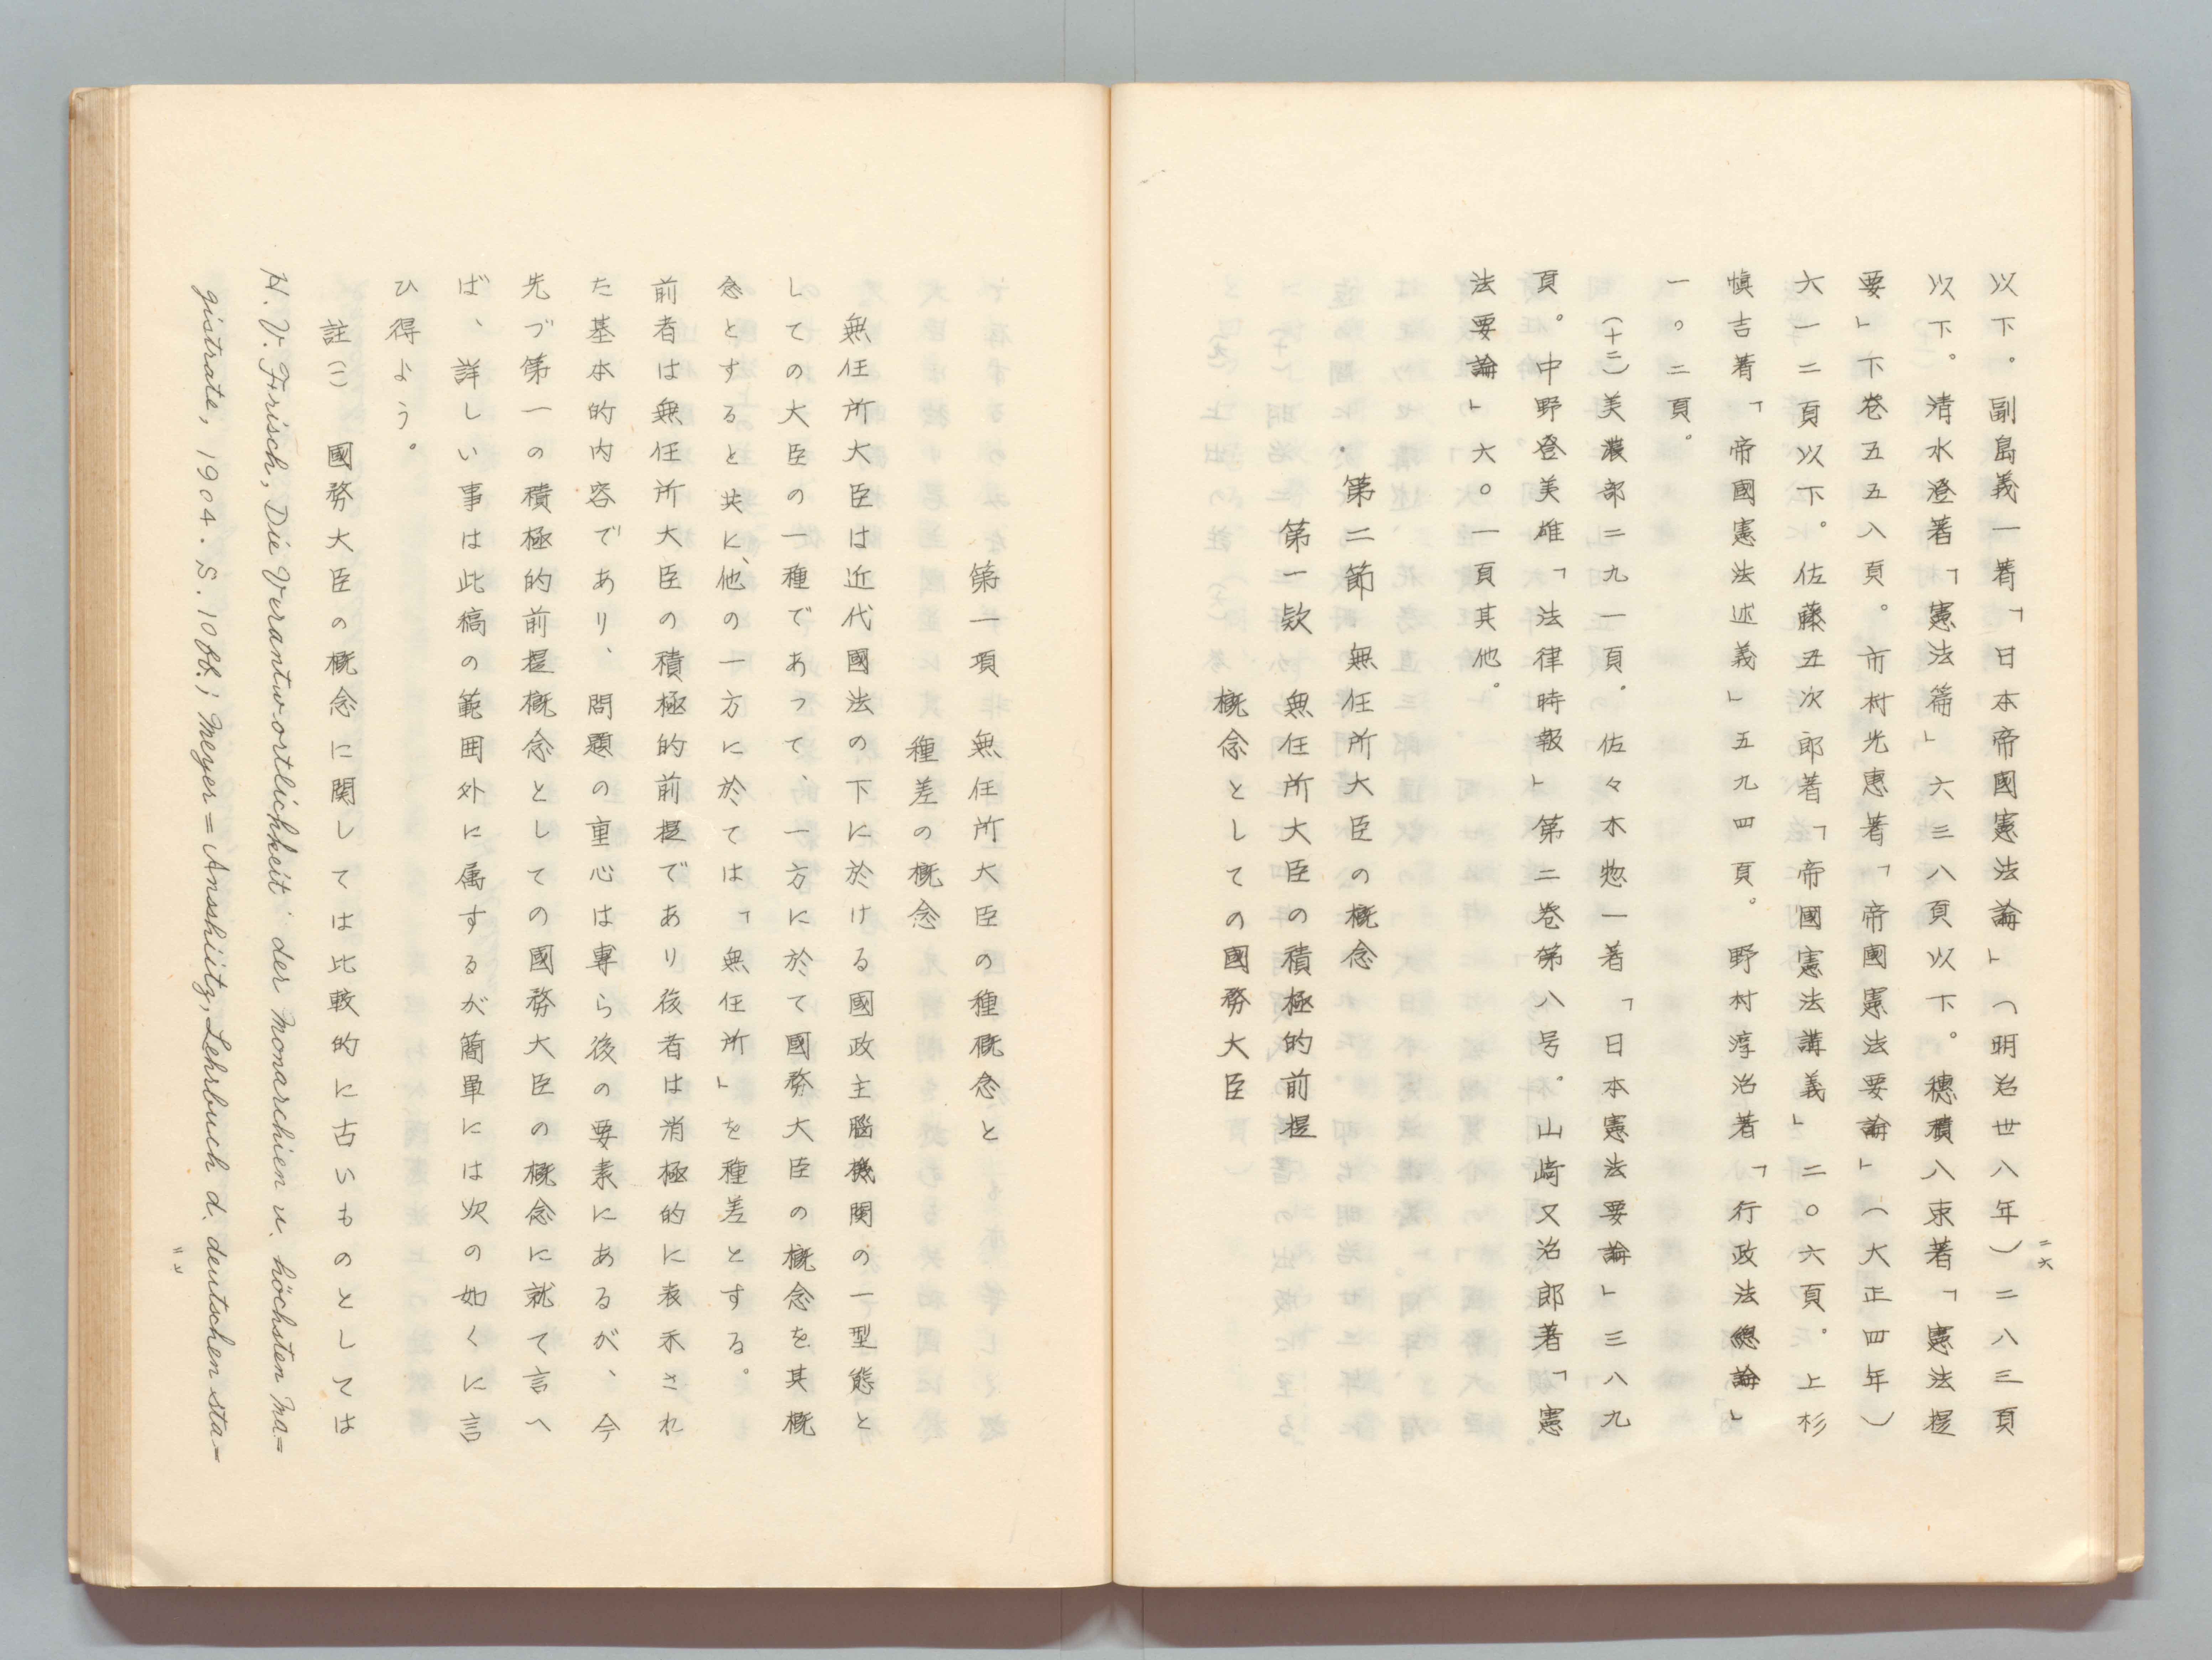 二六
以下。副島義一著「日本帝國憲法論」(明治丗八年)二八三頁
以下。清水澄著「憲法篇」六三八頁以下。穗積八束著「憲法提
要」下巻五五八頁。市村光惠著「帝國憲法要論」(大正四年)
六一二頁以下。佐藤丑次郎著「帝國憲法講義」二〇六頁。上杉
愼吉著「帝國憲法述義」五九四頁。野村淳治著「行政法總論」
一〇二頁。
(十二)美濃部二九一頁。佐々木惣一著「日本憲法要論」三八九
頁。中野登美雄「法律時報」第二巻第八号。山崎又治郎著「憲
法要論」六〇一頁其他。
第二節 無任所大臣の概念
第一欵 無任所大臣の積極的前提
概念としての國務大臣
第一項 無任所大臣の種概念と
種差の概念
無任所大臣は近代國法の下に於ける國政主腦機関の一型態と
しての大臣の一種であって、一方に於て國務大臣の概念を其概
念とすると共に、他の一方に於ては「無任所」を種差とする。
前者は無任所大臣の積極的前提であり後者は消極的に表示され
た基本的内容であり、問題の重心は専ら後の要素にあるが、今
先づ第一の積極的前提概念としての國務大臣の概念に就て言へ
ば、詳しい事は此稿の範囲外に属するが簡単には次の如くに言
ひ得よう。
註(一) 國務大臣の概念に関しては比較的に古いものとしては
H. V. Frisch, Die Verantwortlichkeit der Monarchien u. höchsten Ma=
gistrate, 1904. S. 10 ff.; Meyer=Ansshütz, Lehrbuch d. deutschen sta=